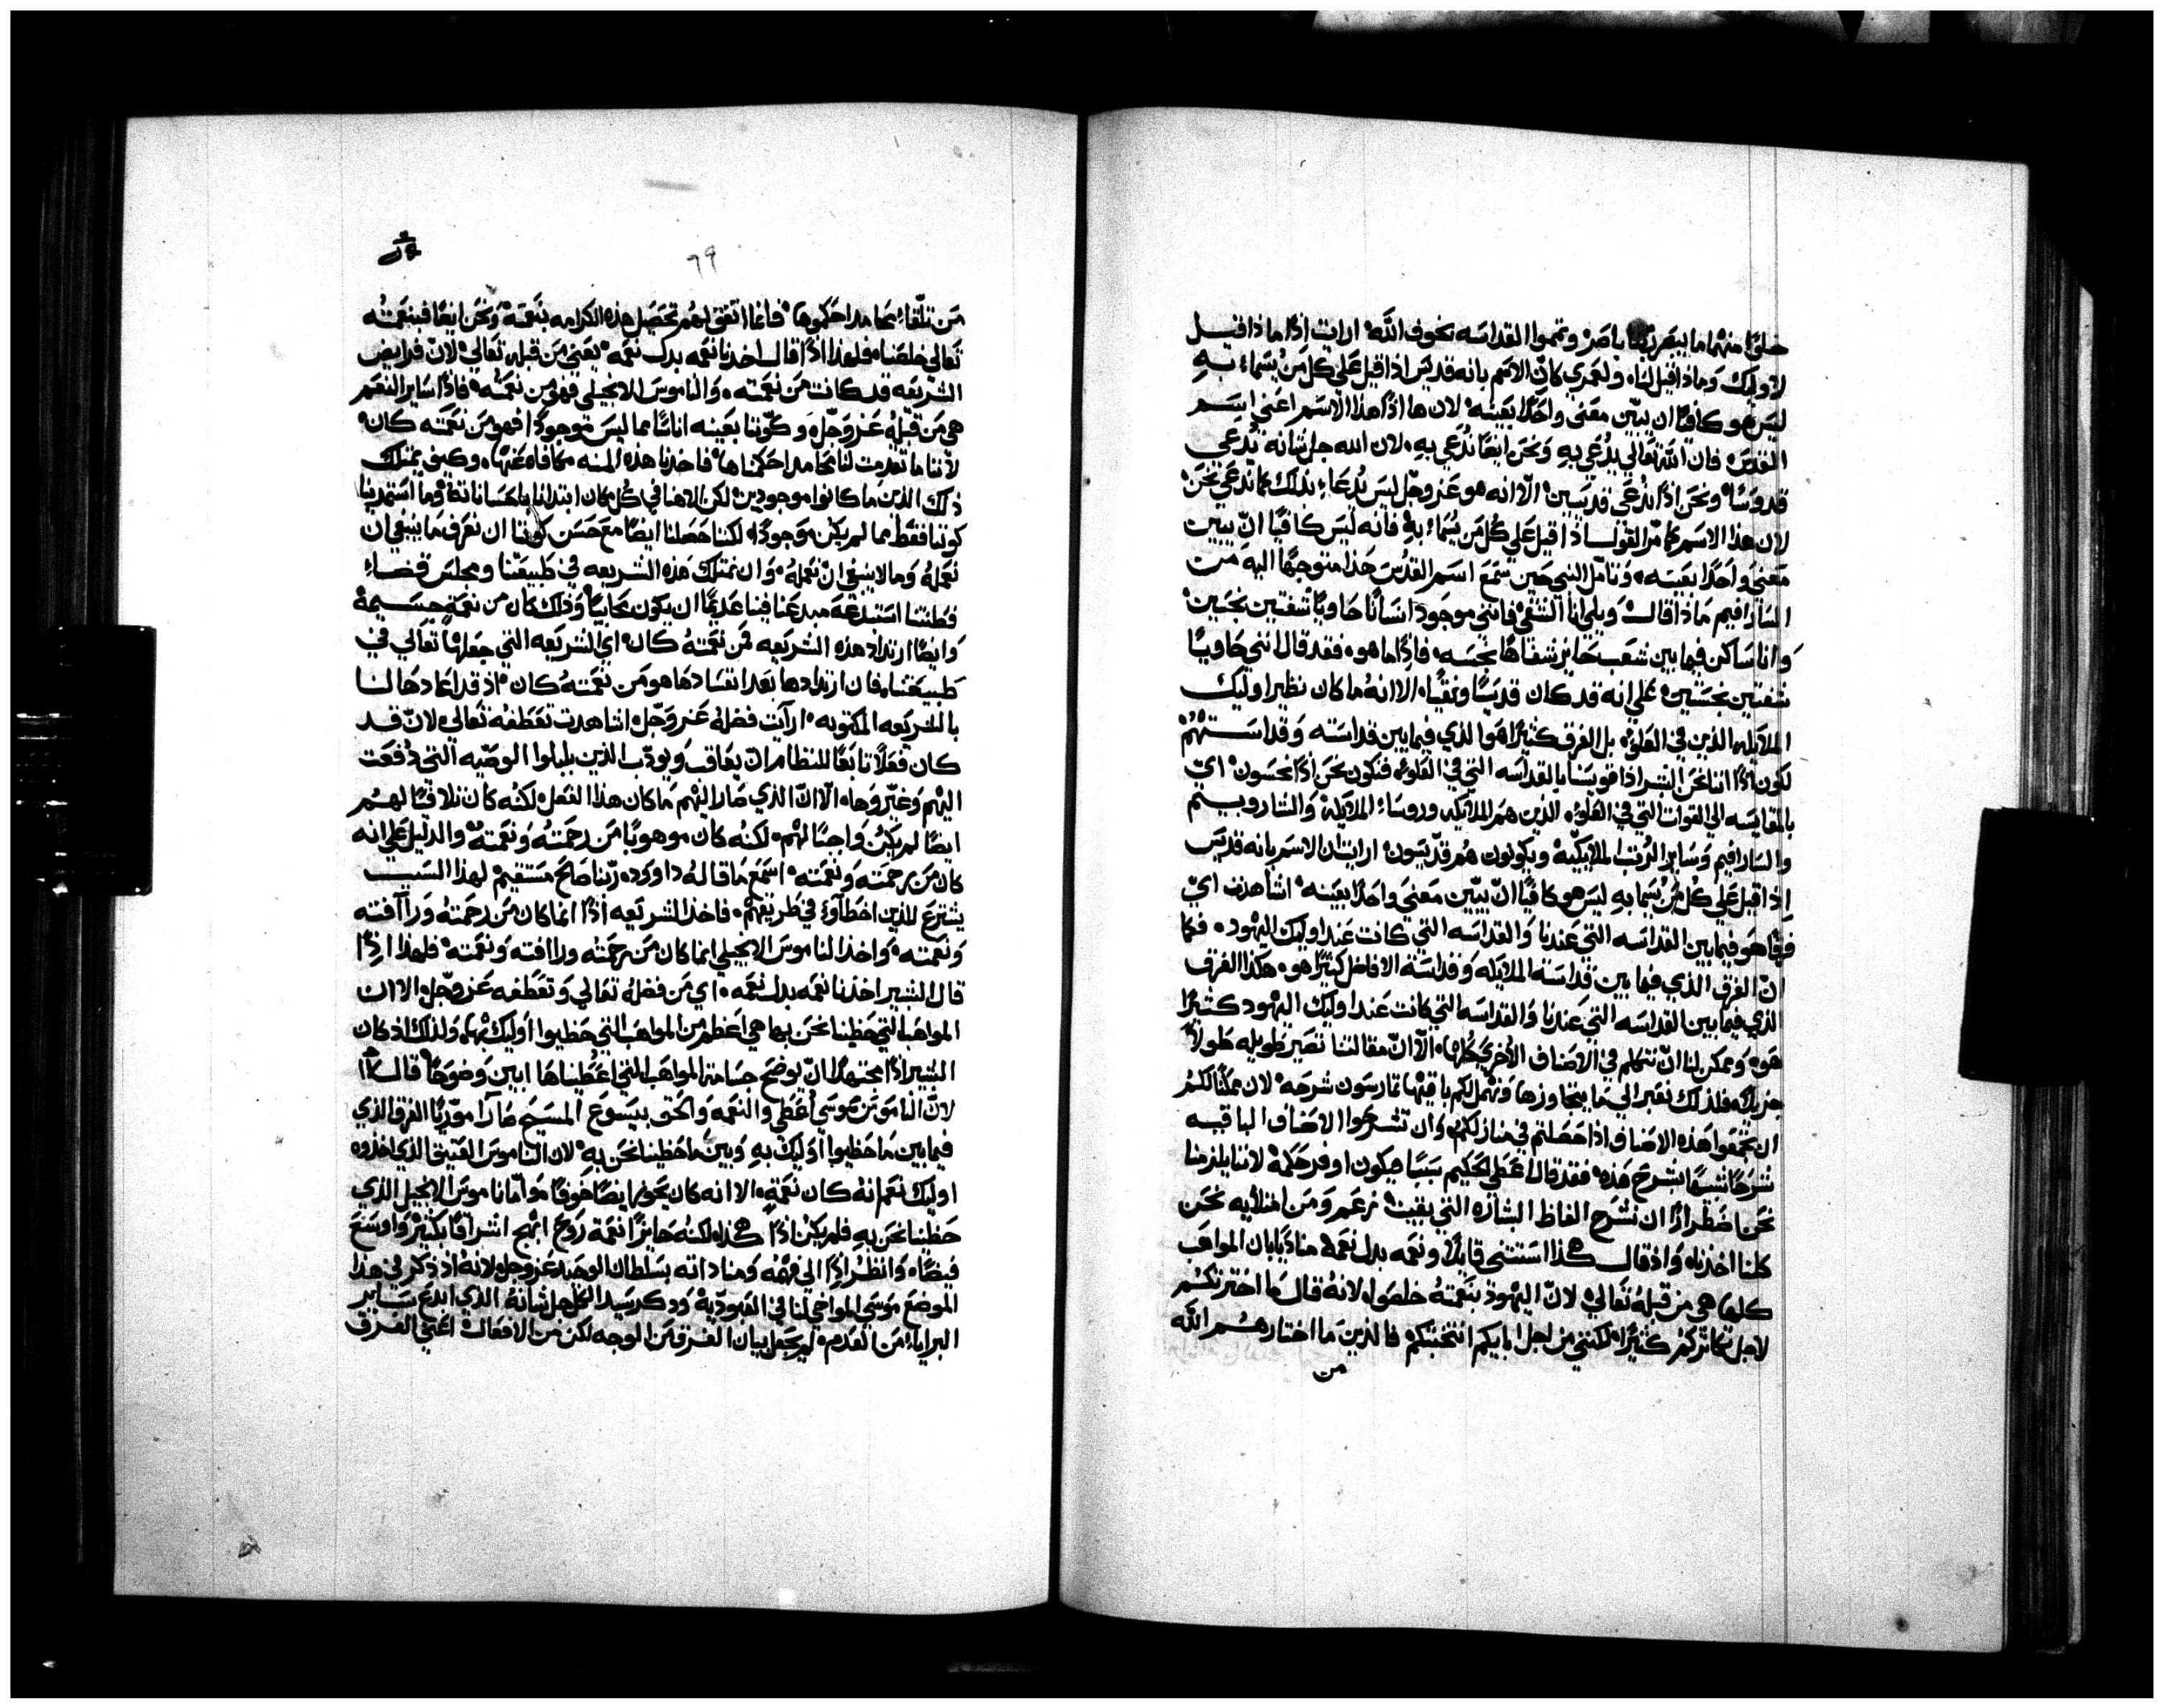 خلوًا منهما ما يبصر الله باصر وتمموا القداسه بخوف الله ارايت اذًا ماذا قيل
لاوليك وماذا قيل لنا ولعمري كان الاسم بانه قديس اذا قيل على كل من يسماء به
ليس هو كافيًا ان يبيّن معنى واحدًا بعينه لان ها اذًا هذا الاسم اعني اسم
القدس فان الله تعالي يدعي به ونحن ايضًا ندعي به لان الله جل ثنانه يدعي
قدوسًا ونحن اذًا ندعى قديسين الّا انه هو عز وجل ليس يدعاء بذلك كما ندعي نحن
لان هذا الاسم كما مرّ القول اذا قيل على كل من يسماء به فانه ليس كافيًا ان يبين
معنى واحدًا بعينه وتامّل النبي حين سمع اسم القدس هذا متوجهًا اليه من
السارافيم ماذا قال ويلي انا الشقي فانني موجود انسانًا حاويًا شفتين نجسين
وانا ساكن فيما بين شعب حايز شفاهًا نجسه فاذًا ما هو فقد قال انني حاويًا
شفتين نجستين على انه قد كان قديسًا ونقيًا الا انه ما كان نظير اوليك
الملايكه الذين في العلوّ بل الفرق كثيرًا هو الذي فيما بين قداسته وقداستهم
لكون اذًا اننا نحن البشر اذا قويسنا بالقداسه التي في العلوّ فنكون نحن اذًا نجسون ايّ
بالمقايسه الى القوات التي في العلوّ الذين هم الملايكه وروساء الملايكه والشاروبيم
والسارافيم وساير الرتب الملايكيّه ويكونون هم قدّيسون ارايت ان الاسم بانه قديس
اذا قيل على كل من يسما به ليس هو كافيًا ان يبيّن معنى واحدًا بعينه اشاهدت ايّ
فرقًا هو فيما بين القداسه التي عندنا والقداسه التي كانت عند اوليك اليهود فكما
انّ الفرق الذي فيما بين قداسة الملايكه وقداسة الافاضل كثيرًا هو هكذا الفرق
الذي فيما بين القداسه التي عندنا والقداسه التي كانت عند اوليك اليهود كثيرًا
هو ويمكن لنا انّ نتكلم في الاصناف الاخرى كلها الّا انّ مقالتنا تصير طويله طولًا
جزيلًا فلذلك نعبر الى ما يتجاوزها ونهمل لكم باقيها تمارسون شرحه لان ممكنًا لكم
ان تجمعوا هذه الاصناف اذا حصلتم في منازلكم وان تشرحوا الاصناف الباقيه
شرحًا شبيهًا بشرح هذه فقد قال اعطي لحكيم سببًا فيكون اوفر حكمه لاننا يلزمنا
نحن اضطرارًا ان نشرح الفاظ البشاره التي بقيت زعم ومن امتلايه نحن
كلنا اخذناه واذ قال هكذا استثنى قايلًا ونعمه بدل نعمه مناديًا بان المواهب
كلها هي من قبله تعالي لانّ اليهود بنعمته خلصوا لانه قال ما اخترتكم
لاجل تكاثركم كثيرًا لكنني من اجل ابايكم انتخبتكم فالذين ما اختارهم الله
من
٦٩
من تلقاء محامد احكموها فانما اتفق لهم تحصيل هذه الكرامه بنعمة ونحن ايضًا فبنعمته
تعالى خلصنا فلهذا اذًا قال اخذنا نعمه بدل نعمه يعني من قبله تعالي لانّ فرايض
الشريعه قد كانت من نعمته والناموس الانجيلي فهو من نعمته فاذًا ساير النعم
هي من قبله عز وجلّ وكوننا بعينه اناسًا مما ليس موجودًا فهو من نعمته كان
لاننا ما تقدمت لنا محامد احكمناها فاخذنا هذه المنه مكافاه عنها وكيف يمتلك
ذلك الذين ما كانوا موجودين لكن الاهنا في كل مكان ابتدانا باحساناته وما استمدينا
كوننا فقط مما لم يكن موجودًا لكننا حصلنا ايضًا مع حسن كوننا ان نعرف ما ينبغي ان
نعمله وما لا ينبغي ان نعمله وان نمتلك هذه الشريعه في طبيعتنا ومجلس قضاء
فطنتنا استبدعه مبدعنا فينا عديمًا ان يكون محابيًا وذلك كان من نعمةٍ جسيمة
وايضًا ارتداد هذه الشريعه فمن نعمته كان اي الشريعه التي جعلها تعالي في
طبيعتنا فان ارتدادها بعد افسادها هو من نعمته كان اذ قد اعادها لنا
بالشريعه المكتوبه ارايت فضله عز وجل اشاهدت تعطفه تعالى لانّ قد
كان فعلًا تابعًا للنظام ان يعاقب ويودّب الذين بلبلوا الوصيّه التي دفعت
اليهم وغيّروها الّا انّ الذي صار اليهم ما كان هذا الفعل لكنه كان تلافيًا لهم
ايضًا لم يكن واجبًا لهم لكنه كان موهوبًا من رحمته ونعمته والدليل على انه
كان من رحمته ونعمته اسمع ما قاله داوود ربّنا صالح مستقيم لهذا السبب
يشترع للذين اخطاوء في طريقهم فاخذ الشريعه اذًا انما كان من رحمته ورآافته
ونعمته واخذ الناموس الانجيلي انما كان من رحمته وراافته ونعمته فلهذا اذًا
قال البشير اخذنا نعمه بدل نعمه اي من فضله تعالى وتعطفه عز وجل الا ان
المواهب التي حظينا نحن بها هي اعظم من المواهب التي حظيوا اوليك بها ولذلك اذ كان
البشير اذًا مجتهدًا انّ يوضح جسامة المواهب التي اعطيناها ابين وضوحًا قال هكذا
لانّ الناموس بموسى اعطي والنعمه والحق بيسوع المسيح صارا مورّيًا الفرق الذي
فيما بين ما حظيوا اوليك به وبين ما حظينا نحن به لان الناموس العتيق الذي اخذوه
اوليك نعم انه كان نعمةٍ الا انه كان يحوي ايضًا خوفًا وامّا ناموس الانجيل الذي
حظينا نحن به فلم يكن اذًا هكذا لكنه حايزًا نعمة روح ابهج اشراقًا بكثير واوسع
فيضًا وانظر اذًا الى فهمه ومناداته بسلطان الوحيد عز وجل لانه اذ ذكر في هذا
الموضع موسى المواخي لنا في العبوديّة وذكر سيد الكل جل ثنانه الذي ابدع ساير
البرايا من العدم لم يجعل بيان الفرق من الوجه لكن من الافعال اعني الفرق